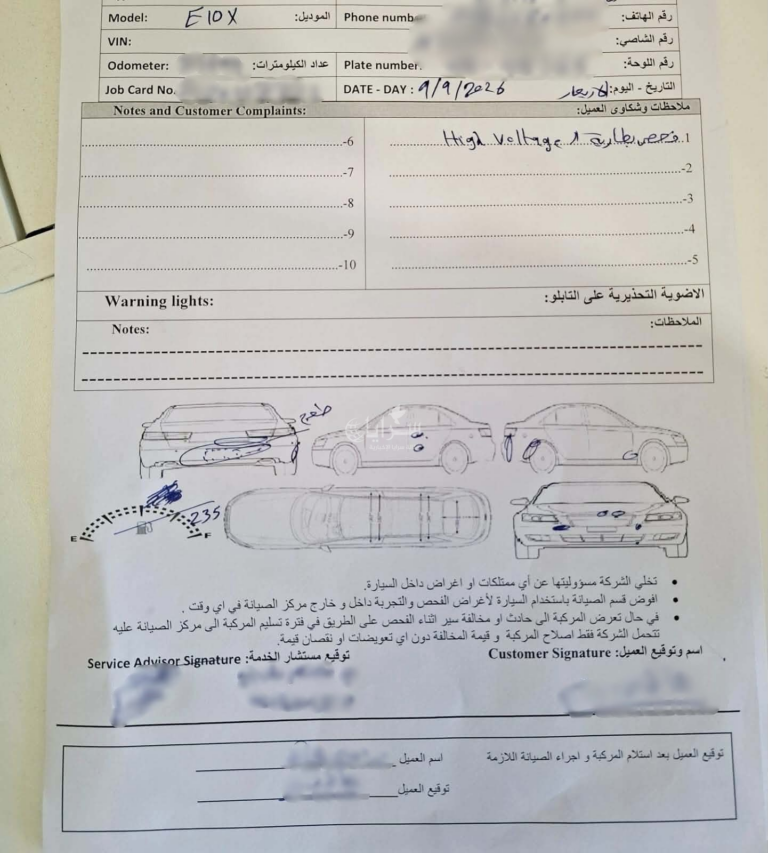 Model: E10X الموديل: Phone numb رقم الهاتف:
VIN: رقم الشاصي:
Odometer: عداد الكيلومترات: Plate number. رقم اللوحة:
Job Card No. DATE - DAY : 9/9/2026 التاريخ - اليوم: الاربعاء
Notes and Customer Complaints: ملاحظات وشكاوى العميل:
1. فحص بطارية High Voltage
-6
-2
-7
-3
-8
-4
-9
-5
-10
Warning lights: الاضوية التحذيرية على التابلو:
Notes: الملاحظات:
طعج
سرايا
235
E F
• تخلي الشركة مسؤوليتها عن أي ممتلكات او اغراض داخل السيارة.
• افوض قسم الصيانة باستخدام السيارة لأغراض الفحص والتجربة داخل و خارج مركز الصيانة في اي وقت .
• في حال تعرض المركبة الى حادث او مخالفة سير اثناء الفحص على الطريق في فترة تسليم المركبة الى مركز الصيانة عليه
تتحمل الشركة فقط اصلاح المركبة و قيمة المخالفة دون اي تعويضات او نقصان قيمة.
Service Advisor Signature :توقيع مستشار الخدمة Customer Signature :اسم وتوقيع العميل
توقيع العميل بعد استلام المركبة و اجراء الصيانة اللازمة اسم العميل
توقيع العميل